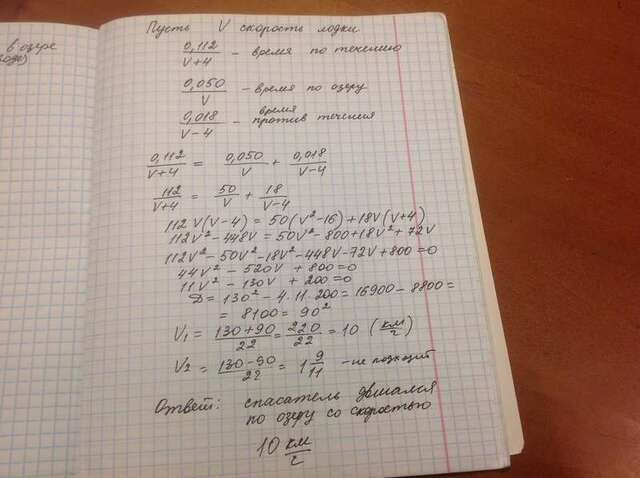 в озере
Пусть V скорость лодки
0,112/(V+4) - время по течению
0,050/V - время по озеру
0,018/(V-4) - время против течения
0,112/(V+4) = 0,050/V + 0,018/(V-4)
112/(V+4) = 50/V + 18/(V-4)
112V(V-4) = 50(V²-16)+18V(V+4)
112V²-448V = 50V²-800+18V²+72V
112V²-50V²-18V²-448V-72V+800=0
44V² - 520V + 800=0
11V² - 130V + 200=0
D = 130² - 4·11·200 = 16900 - 8800 =
= 8100 = 90²
V₁ = (130+90)/22 = 220/22 = 10 (км/ч)
V₂ = (130-90)/22 = 1 9/11 - не подходит
Ответ: спасатель двигался
по озеру со скоростью
10 км/ч